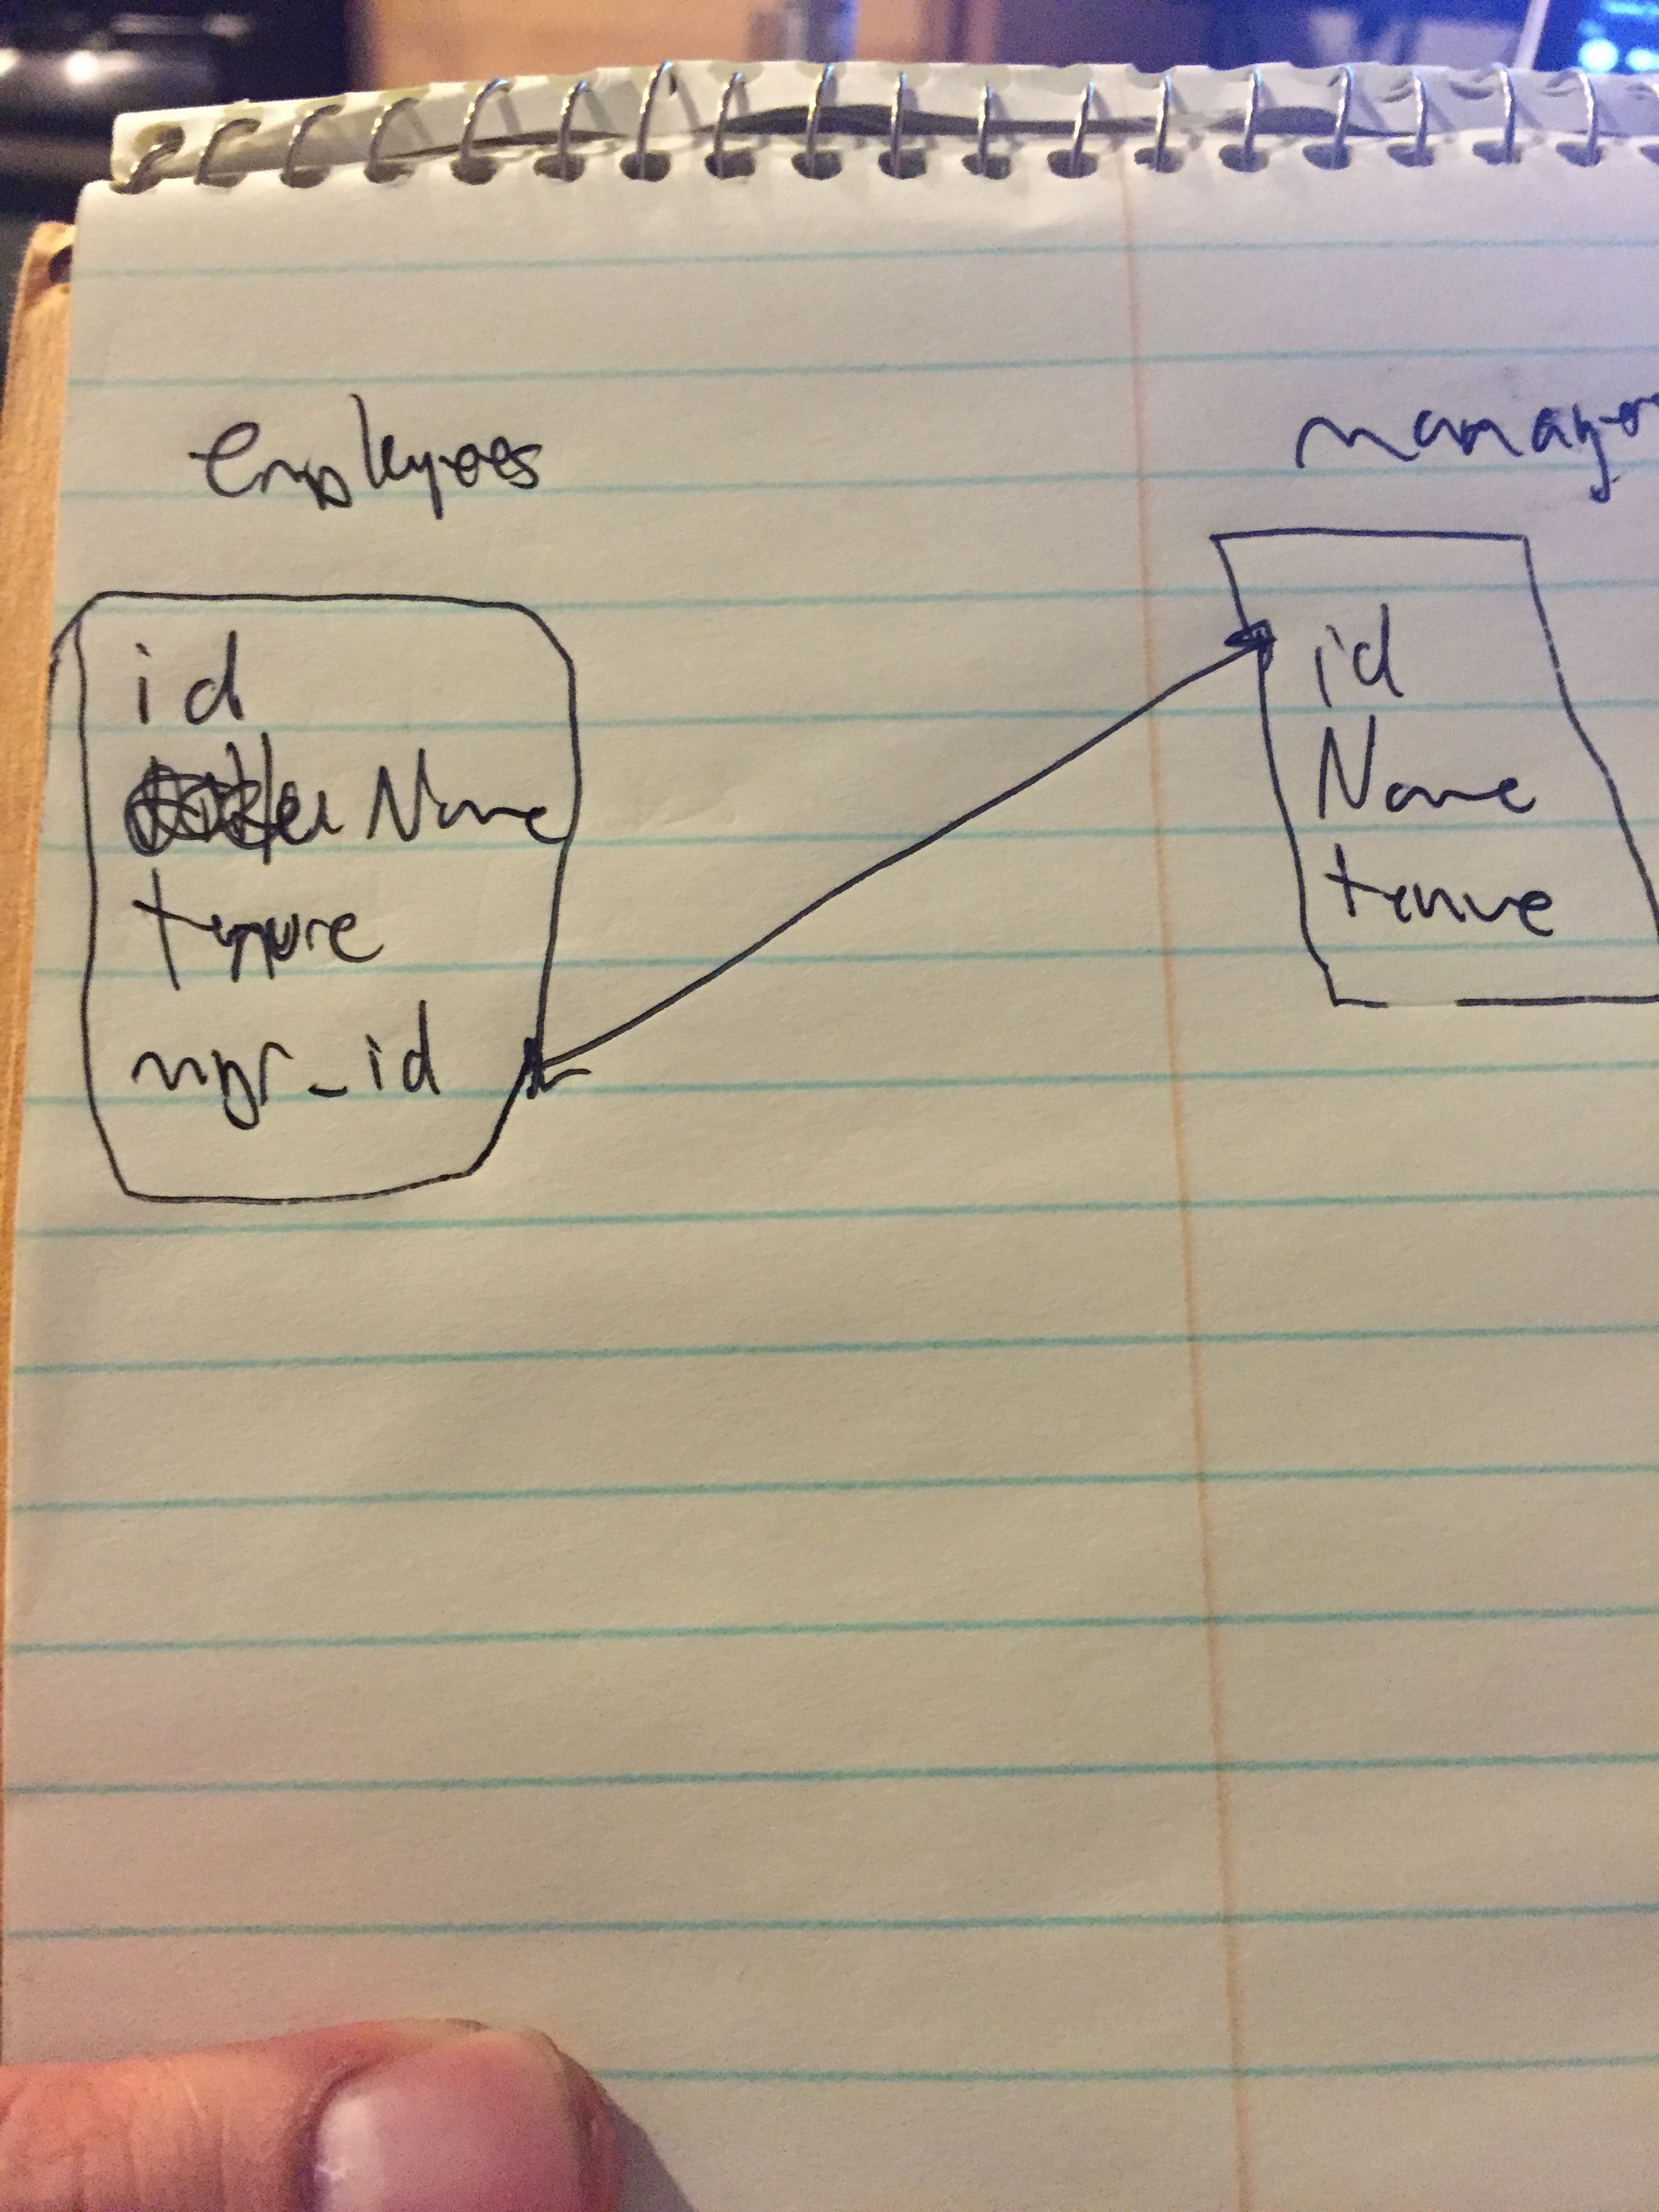 employees
id
Name
tenure
mgr_id
manager
id
Name
tenure